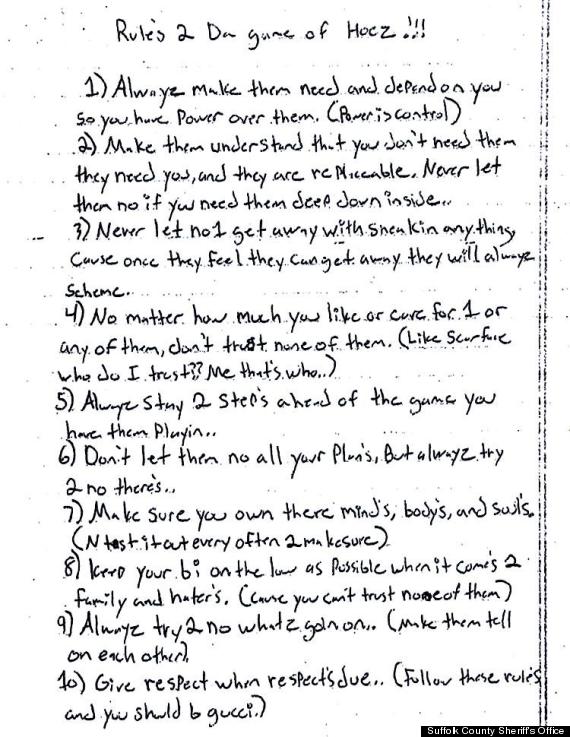 Rule's 2 Da game of Hoez!!!
1) Alwayz make them need and depend on you
so you have Power over them. (Power is control)
2) Make them understand that you don't need them
they need you, and they are replaceable. Never let
them no if you need them deep down inside..
3) Never let no1 get away with sneakin anything,
Cause once they feel they can get away they will alwayz
scheme.
4) No matter how much you like or care for 1 or
any of them, don't trust none of them. (Like Scarface
who do I trust?? Me that's who..)
5) Alwayz stay 2 step's ahead of the game you
have them Playin..
6) Don't let them no all your Plan's, But alwayz try
2 no there's..
7) Make sure you own there mind's, body's, and soul's.
(N test it out every often 2 make sure)
8) Keep your bi on the low as Possible when it come's 2
family and hater's. (cause you can't trust none of them)
9) Alwayz try 2 no whatz goin on.. (Make them tell
on each other).
10) Give respect when respect's due.. (Follow these rule's
and you should b gucci.)
Suffolk County Sheriff's Office